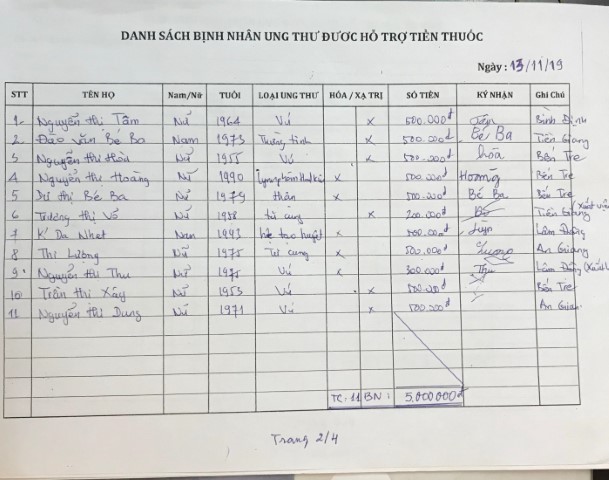 DANH SÁCH BỊNH NHÂN UNG THƯ ĐƯỢC HỖ TRỢ TIỀN THUỐC
Ngày : 13/11/19
STT TÊN HỌ Nam/Nữ TUỔI LOẠI UNG THƯ HÓA / XẠ TRỊ SỐ TIỀN KÝ NHẬN Ghi Chú
1 Nguyễn thị Tâm Nữ 1964 Vú x 500.000đ Bình Định
2 Đào văn Bé Ba Nam 1973 x 500.000đ Bé Ba Tiền Giang
3 Nguyễn thị Nữ 1955 Vú x 500.000đ hòa Bến Tre
4 Nguyễn thị Hoàng Nữ 1990 x 500.000đ Hoàng Bến Tre
5 Dư thị Bé Ba Nữ 1979 thận x 500.000đ Bé Ba Bến Tre
6 Trương thị Nữ tử cung x 200.000đ Tiền Giang
7 K' Da Nhet Nam hệ tạo huyết x 500.000đ Lâm Đồng
8 Thi Lương Nữ 1975 Tử cung x 500.000đ Lương An Giang
9 Nguyễn thị Thu Nữ 1975 Vú x 300.000đ Thu Lâm Đồng
10 Trần thị Xáy Nữ 1953 Vú x 500.000đ Bến Tre
11 Nguyễn thị Dung Nữ 1971 Vú x 500.000đ An Giang
TC: 11 BN : 5.000.000đ
Trang 2/4